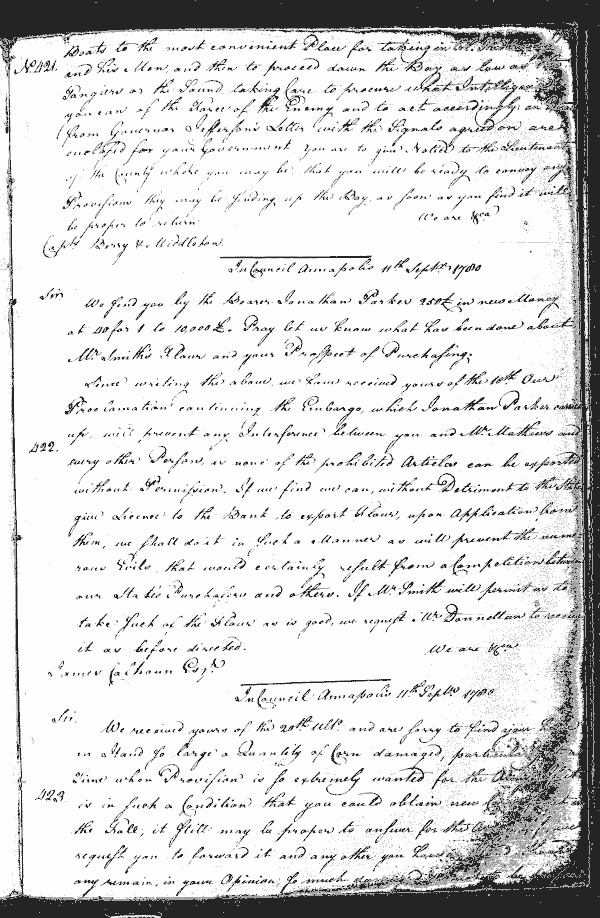 No. 421. Boats to the most convenient Place for taking in Col.
and his Men, and then to proceed down the Bay as low as
Tangiers or the Sound taking Care to procure what Intelligence
you can of the Force of the Enemy and to act accordingly; an
from Governor Jefferson's Letter with the Signals agreed on are
enclosed for your Government you are to give Notice to the Lieutenants
of the County where you may be, that you will be ready to convoy any
Provisions they may be sending up the Bay, as soon as you find it will
be proper to return. We are &ca
Capts. Berry & Middleton.
In Council Annapolis 11th Septr. 1780
Sir
We send you by the Bearer Jonathan Parker 250£ in new Money
at 40 for 1 to 10,000£. Pray let us know what has been done about
Mr. Smith's Flour and your Prospect of Purchasing;
Since writing the above, we have received yours of the 10th Our
Proclamation continuing the Embargo, which Jonathan Parker carries
up, will prevent any Interference between you and Mr. Mathews and
422. every other Person, as none of the prohibited Articles can be exported
without Permission. If we find we can, without Detriment to the State
give Licence to the Bank to export Flour, upon Application from
them, we shall do it in such a Manner as will prevent the nume-
rous Evils, that would certainly result from a Competition between
our State's Purchasers and others. If Mr. Smith will permit us to
take such of the Flour as is good, we request Mr. Donnellan to receive
it as before directed. We are &ca
James Calhoun Esqr.
In Council Annapolis 11th Septr. 1780
Sir.
We received yours of the 29th Ulto. and are sorry to find you
in Hand so large a Quantity of Corn damaged, particularly
Time when Provision is so extremely wanted for the Army
423. is in such a Condition that you could obtain new
the Fall, it still may be proper to answer for the
request you to forward it and any other you have
any remain, in your Opinion, so much damaged